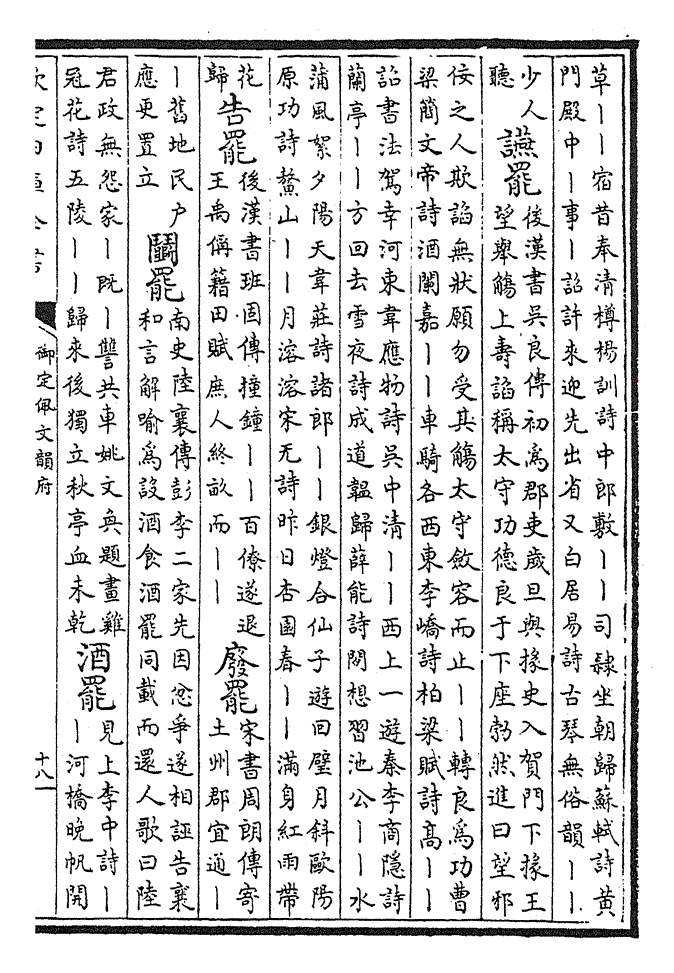 草丨丨宿昔奉清樽楊訓詩中郎敷丨丨司隸坐朝歸蘇軾詩黃
門殿中丨事丨詔許來迎先出省又白居易詩古琴無俗韻丨丨
少人
聽
讌罷
後漢書吳良傳初為郡吏歲旦與掾史入賀門下掾王
望舉觴上壽諂稱太守功德良于下座勃然進曰望邪
佞之人欺諂無狀願勿受其觴太守斂容而止丨丨轉良為功曹
梁簡文帝詩酒闌嘉丨丨車騎各西東李嶠詩柏梁賦詩髙丨丨
詔書法駕幸河東韋應物詩吳中清丨丨西上一遊秦李商隱詩
蘭亭丨丨方回去雪夜詩成道韞歸薛能詩閟想習池公丨丨水
蒲風絮夕陽天韋莊詩諸郎丨丨銀燈合仙子遊回璧月斜歐陽
原功詩鰲山丨丨月溶溶宋无詩昨日杏園春丨丨滿身紅雨帶
花
歸
告罷
後漢書班固傳撞鐘丨丨百僚遂退
王禹偁籍田賦庶人終畝而丨丨
廢罷
宋書周朗傳寄
土州郡宜通丨
丨舊地民户
應更置立
鬭罷
南史陸襄傳彭李二家先因忿爭遂相誣告襄
和言解喻為設酒食酒罷同載而還人歌曰陸
君政無怨家丨既丨讐共車姚文奐題畫雞
冠花詩五陵丨丨歸來後獨立秋亭血未乾
酒罷
見上李中詩丨
丨河橋晚帆開
御定佩文韻府
十八